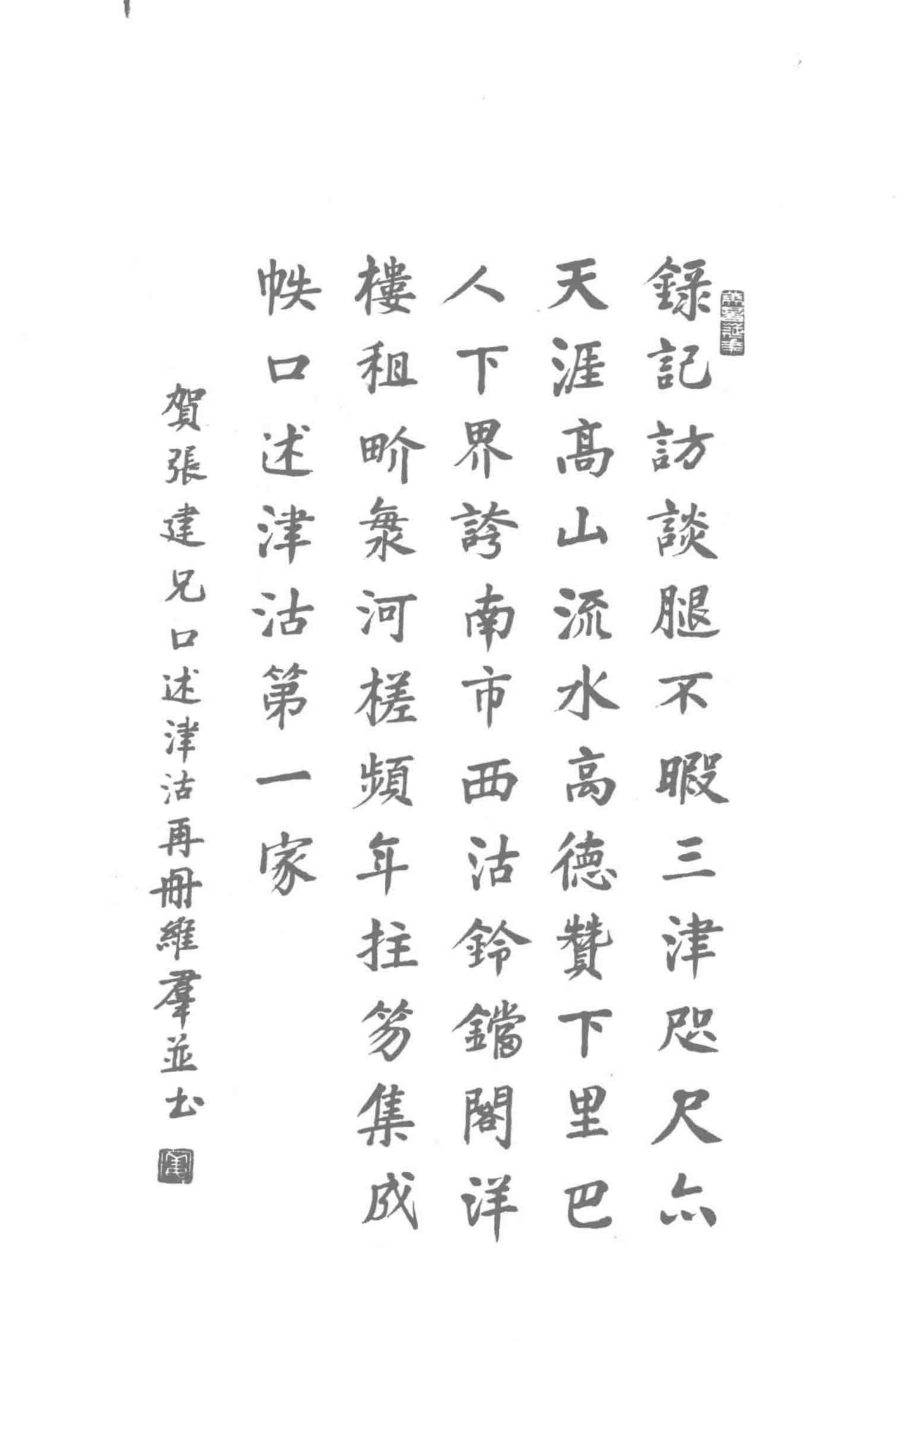 錄記訪談腿不暇三津咫尺亦
天涯高山流水高德贊下里巴
人下界誇南市西沽鈴鐺閣洋
樓租畍衆河槎頻年拄笏集成
帙口述津沽第一家
賀張建兄口述津沽再冊維羣並书